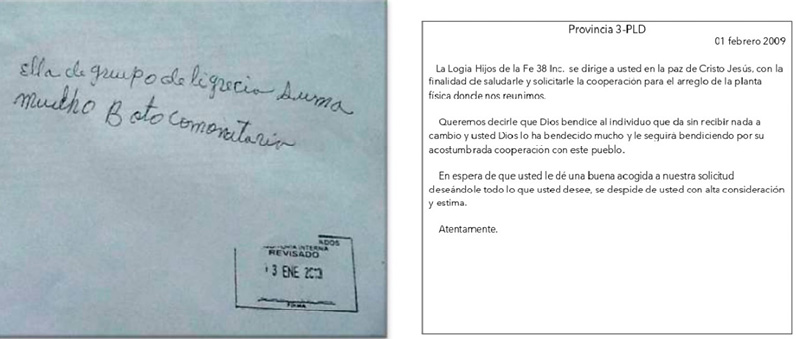 Ella de gruipo de ligrecia suma
mucho Boto comonitarin
ADOS
INTERNA
REVISADO
3 ENE
FIRMA
Provincia 3-PLD
01 febrero 2009
La Logia Hijos de la Fe 38 Inc. se dirige a usted en la paz de Cristo Jesús, con la
finalidad de saludarle y solicitarle la cooperación para el arreglo de la planta
física donde nos reunimos.
Queremos decirle que Dios bendice al individuo que da sin recibir nada a
cambio y usted Dios lo ha bendecido mucho y le seguirá bendiciendo por su
acostumbrada cooperación con este pueblo.
En espera de que usted le dé una buena acogida a nuestra solicitud
deseándole todo lo que usted desee, se despide de usted con alta consideración
y estima.
Atentamente,